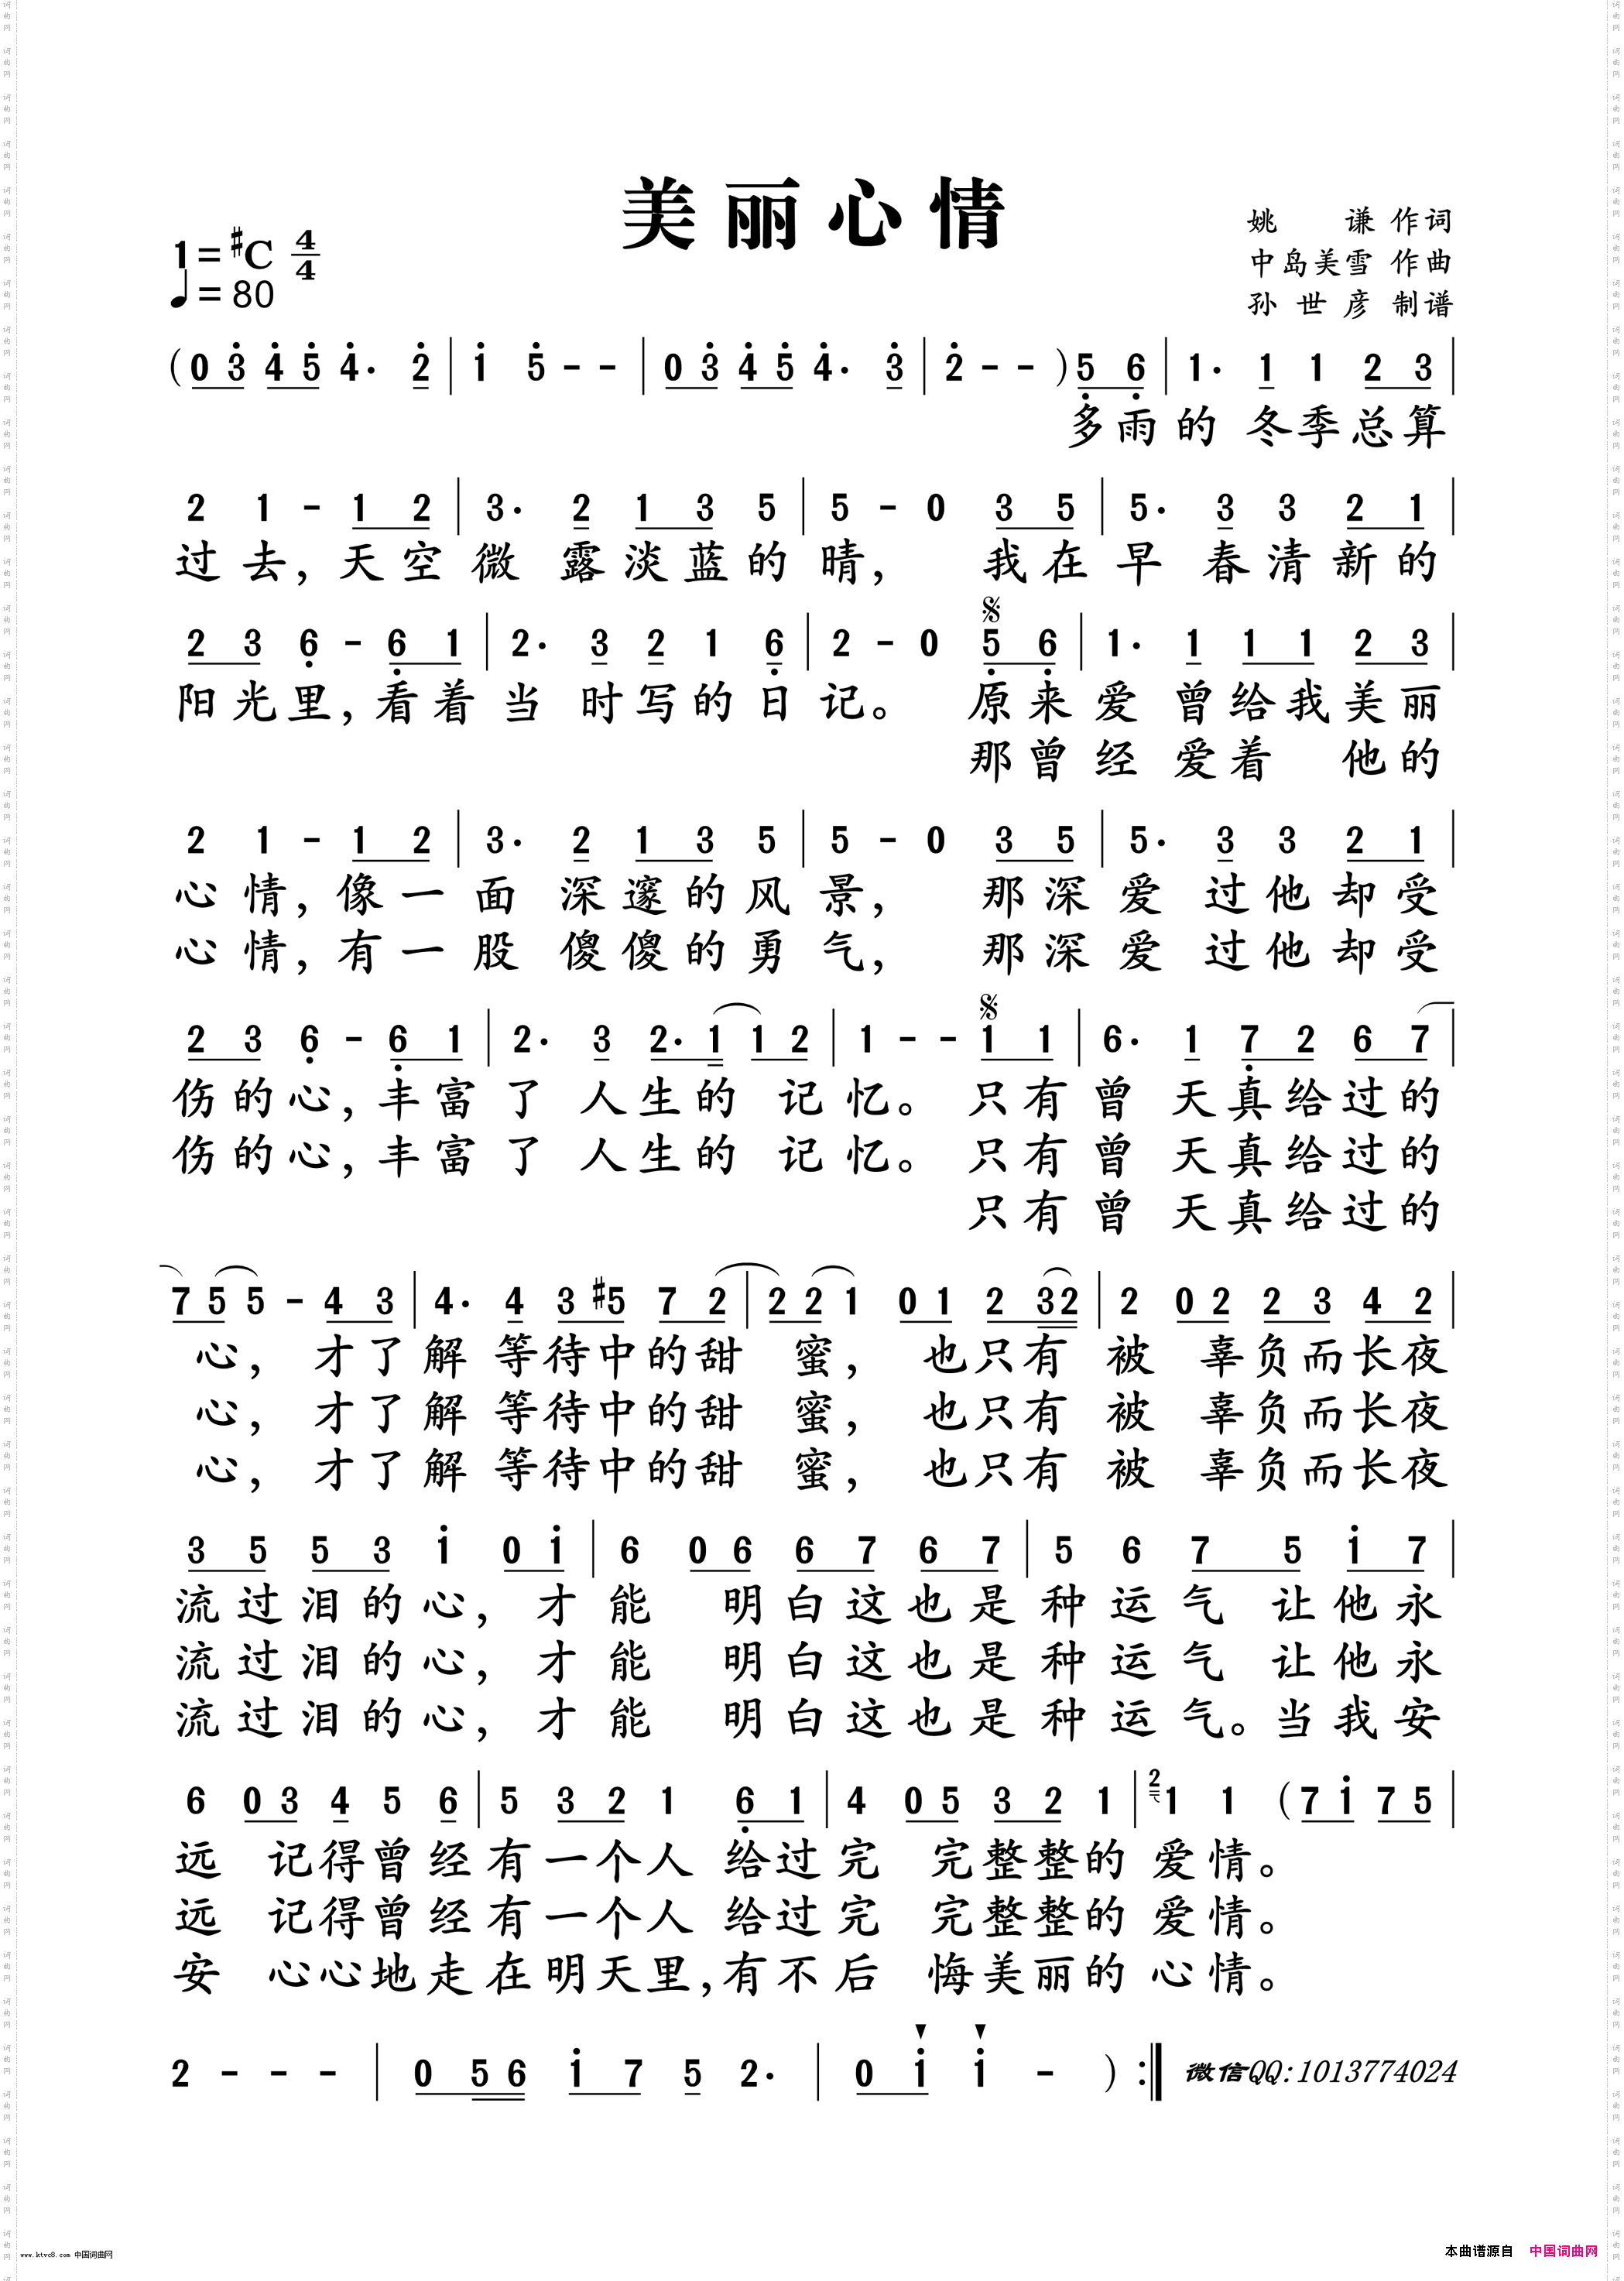 美丽心情
1=#C 4/4
♩=80
姚 谦 作词
中岛美雪 作曲
孙世彦 制谱
(0 3 4 5 4. 2 | 1 5 - - | 0 3 4 5 4. 3 | 2 - - ) 5 6 | 1. 1 1 2 3 |
多雨的 冬季总算
2 1 - 1 2 | 3. 2 1 3 5 | 5 - 0 3 5 | 5. 3 3 2 1 |
过去,天空微 露淡蓝的晴, 我在早 春清新的
2 3 6 - 6 1 | 2. 3 2 1 6 | 2 - 0 5 6 | 1. 1 1 1 2 3 |
阳光里,看着当 时写的日记。 原来爱 曾给我美丽
那曾经 爱着 他的
2 1 - 1 2 | 3. 2 1 3 5 | 5 - 0 3 5 | 5. 3 3 2 1 |
心情,像一面 深邃的风景, 那深爱 过他却受
心情,有一股 傻傻的勇气, 那深爱 过他却受
2 3 6 - 6 1 | 2. 3 2. 1 1 2 | 1 - - 1 1 | 6. 1 7 2 6 7 |
伤的心,丰富了 人生的 记忆。 只有曾 天真给过的
伤的心,丰富了 人生的 记忆。 只有曾 天真给过的
只有曾 天真给过的
7 5 5 - 4 3 | 4. 4 3 #5 7 2 | 2 2 1 0 1 2 3 2 | 2 0 2 2 3 4 2 |
心, 才了解 等待中的甜 蜜, 也只有 被 辜负而长夜
心, 才了解 等待中的甜 蜜, 也只有 被 辜负而长夜
心, 才了解 等待中的甜 蜜, 也只有 被 辜负而长夜
3 5 5 3 1 0 1 | 6 0 6 6 7 6 7 | 5 6 7 5 1 7 |
流过泪的心, 才能 明白这也是种运气 让他永
流过泪的心, 才能 明白这也是种运气 让他永
流过泪的心, 才能 明白这也是种运气。当我安
6 0 3 4 5 6 | 5 3 2 1 6 1 | 4 0 5 3 2 1 | 2 1 1 (7 1 7 5 |
远 记得曾经有一个人 给过完 完整整的爱情。
远 记得曾经有一个人 给过完 完整整的爱情。
安 心心地走在明天里,有不后 悔美丽的心情。
2 - - - | 0 5 6 1 7 5 2. | 0 1 1 - ) :‖ 微信QQ:1013774024
www.ktvc8.com 中国词曲网
本曲谱源自 中国词曲网